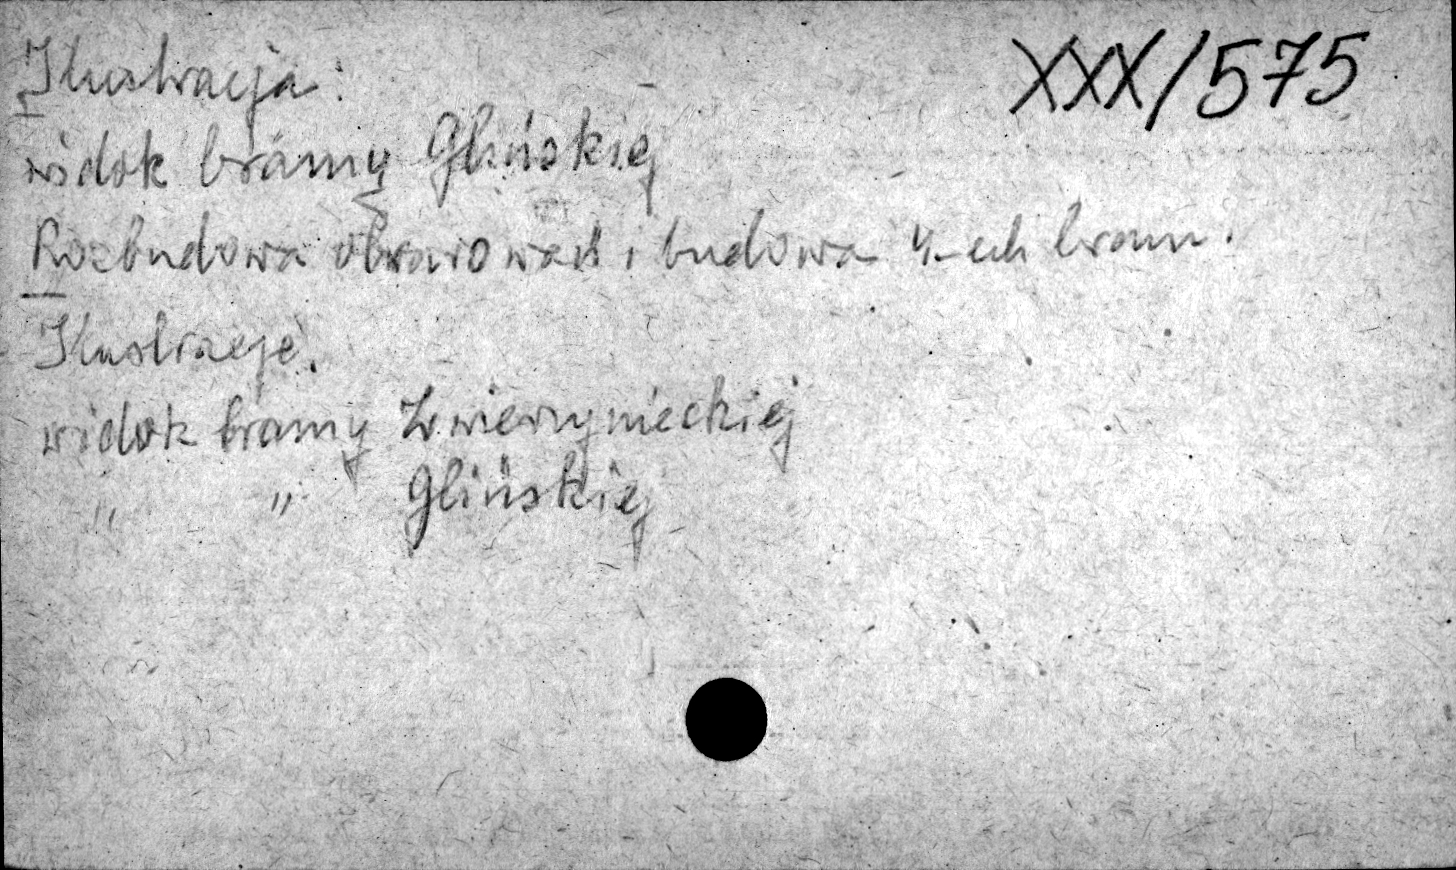 XXX/575
Ilustracja:
widok bramy Glińskiej
Rozbudowa obwarowań i budowa 4-ech bram.
Ilustracje.
widok bramy Zwierzynieckiej
" " Glińskiej